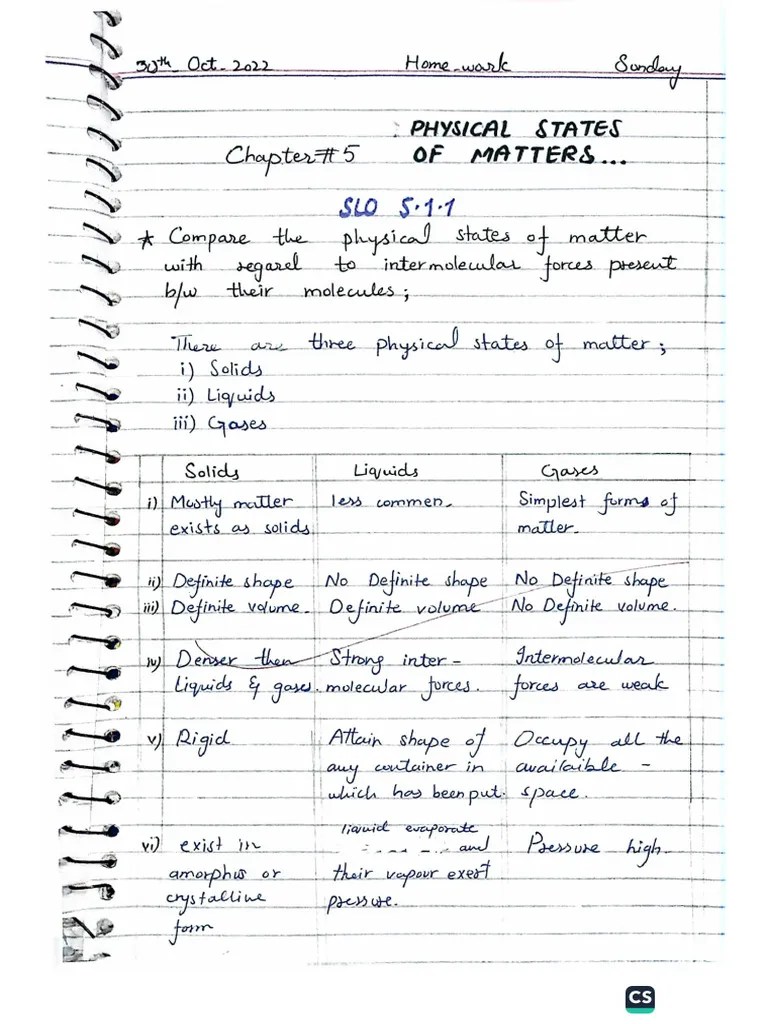 30th Oct. 2022 Home-work Sunday
PHYSICAL STATES
Chapter# 5 OF MATTERS...
SLO 5.1.1
* Compare the physical states of matter
with regard to intermolecular forces present
b/w their molecules;
There are three physical states of matter;
i) Solids
ii) Liquids
iii) Gases
Solids Liquids Gases
i) Mostly matter less commen. Simplest forms of
exists as solids matter.
ii) Definite shape No Definite shape No Definite shape
iii) Definite volume. Definite volume No Definite volume.
iv) Denser then Strong inter- Intermolecular
Liquids & gases. molecular forces. forces are weak
v) Rigid Attain shape of Occupy all the
any container in availaible -
which has been put. space.
liquid evaporate
vi) exist in and Pressure high.
amorphus or their vapour exert
crystalline pressure.
form
CS